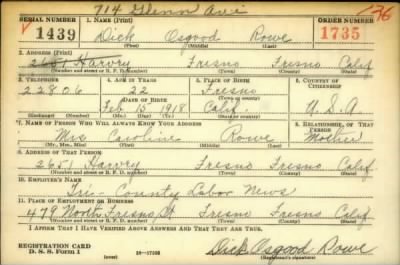 714 Glenn Ave
SERIAL NUMBER 1. NAME (Print) ORDER NUMBER
1439 Dick Osgood Rowe 1735
(First) (Middle) (Last)
2. ADDRESS (Print)
2651 Harvry Fresno Fresno Calif
(Number and street or R. F. D. number) (Town) (County) (State)
3. TELEPHONE 4. AGE IN YEARS 5. PLACE OF BIRTH 6. COUNTRY OF CITIZENSHIP
22806 22 Fresno
DATE OF BIRTH (Town or county)
Feb 15 1918 Calif. U.S.A
(Exchange) (Number) (Mo.) (Day) (Yr.) (State or country)
7. NAME OF PERSON WHO WILL ALWAYS KNOW YOUR ADDRESS 8. RELATIONSHIP OF THAT PERSON
Mrs Caroline Rowe Mother
(Mr., Mrs., Miss) (First) (Middle) (Last)
9. ADDRESS OF THAT PERSON
2651 Harvry Fresno Fresno Calif
(Number and street or R. F. D. number) (Town) (County) (State)
10. EMPLOYER'S NAME
Tri-County Labor News
11. PLACE OF EMPLOYMENT OR BUSINESS
479 North Fresno St Fresno Fresno Calif
(Number and street or R. F. D. number) (Town) (County) (State)
I AFFIRM THAT I HAVE VERIFIED ABOVE ANSWERS AND THAT THEY ARE TRUE.
REGISTRATION CARD
D. S. S. Form 1 (over) 16—17105 Dick Osgood Rowe
(Registrant's signature)